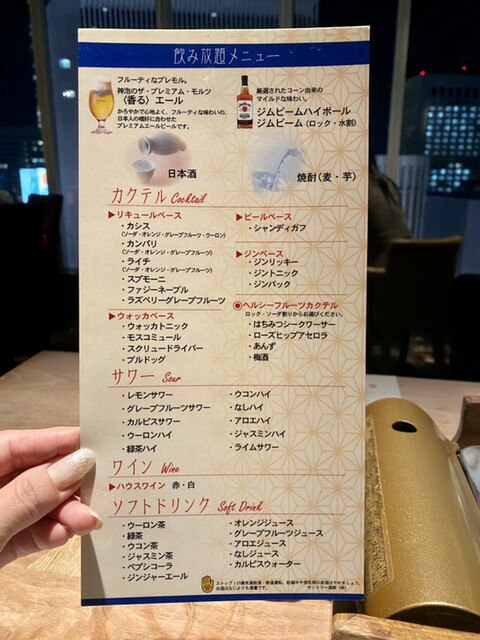 飲み放題メニュー
フルーティなプレモル。
神泡のザ・プレミアム・モルツ
〈香る〉エール
かろやかで心地よく、フルーティな味わいの、
日本人の嗜好に合わせた
プレミアムエールビールです。
厳選されたコーン由来の
マイルドな味わい。
ジムビームハイボール
ジムビーム(ロック・水割)
日本酒
焼酎(麦・芋)
カクテル Cocktail
▶リキュールベース
・カシス
(ソーダ・オレンジ・グレープフルーツ・ウーロン)
・カンパリ
(ソーダ・オレンジ・グレープフルーツ)
・ライチ
(ソーダ・オレンジ・グレープフルーツ)
・スプモーニ
・ファジーネーブル
・ラズベリーグレープフルーツ
▶ウォッカベース
・ウォッカトニック
・モスコミュール
・スクリュードライバー
・ブルドッグ
▶ビールベース
・シャンディガフ
▶ジンベース
・ジンリッキー
・ジントニック
・ジンバック
◉ヘルシーフルーツカクテル
ロック・ソーダ割りからお選びください。
・はちみつシークワーサー
・ローズヒップアセロラ
・あんず
・梅酒
サワー Sour
・レモンサワー
・グレープフルーツサワー
・カルピスサワー
・ウーロンハイ
・緑茶ハイ
・ウコンハイ
・なしハイ
・アロエハイ
・ジャスミンハイ
・ライムサワー
ワイン Wine
▶ハウスワイン 赤・白
ソフトドリンク Soft Drink
・ウーロン茶
・緑茶
・ウコン茶
・ジャスミン茶
・ペプシコーラ
・ジンジャーエール
・オレンジジュース
・グレープフルーツジュース
・アロエジュース
・なしジュース
・カルピスウォーター
ストップ!20歳未満飲酒・飲酒運転。妊娠中や授乳期の飲酒はやめましょう。
お酒はなによりも適量です。
サントリー酒類(株)